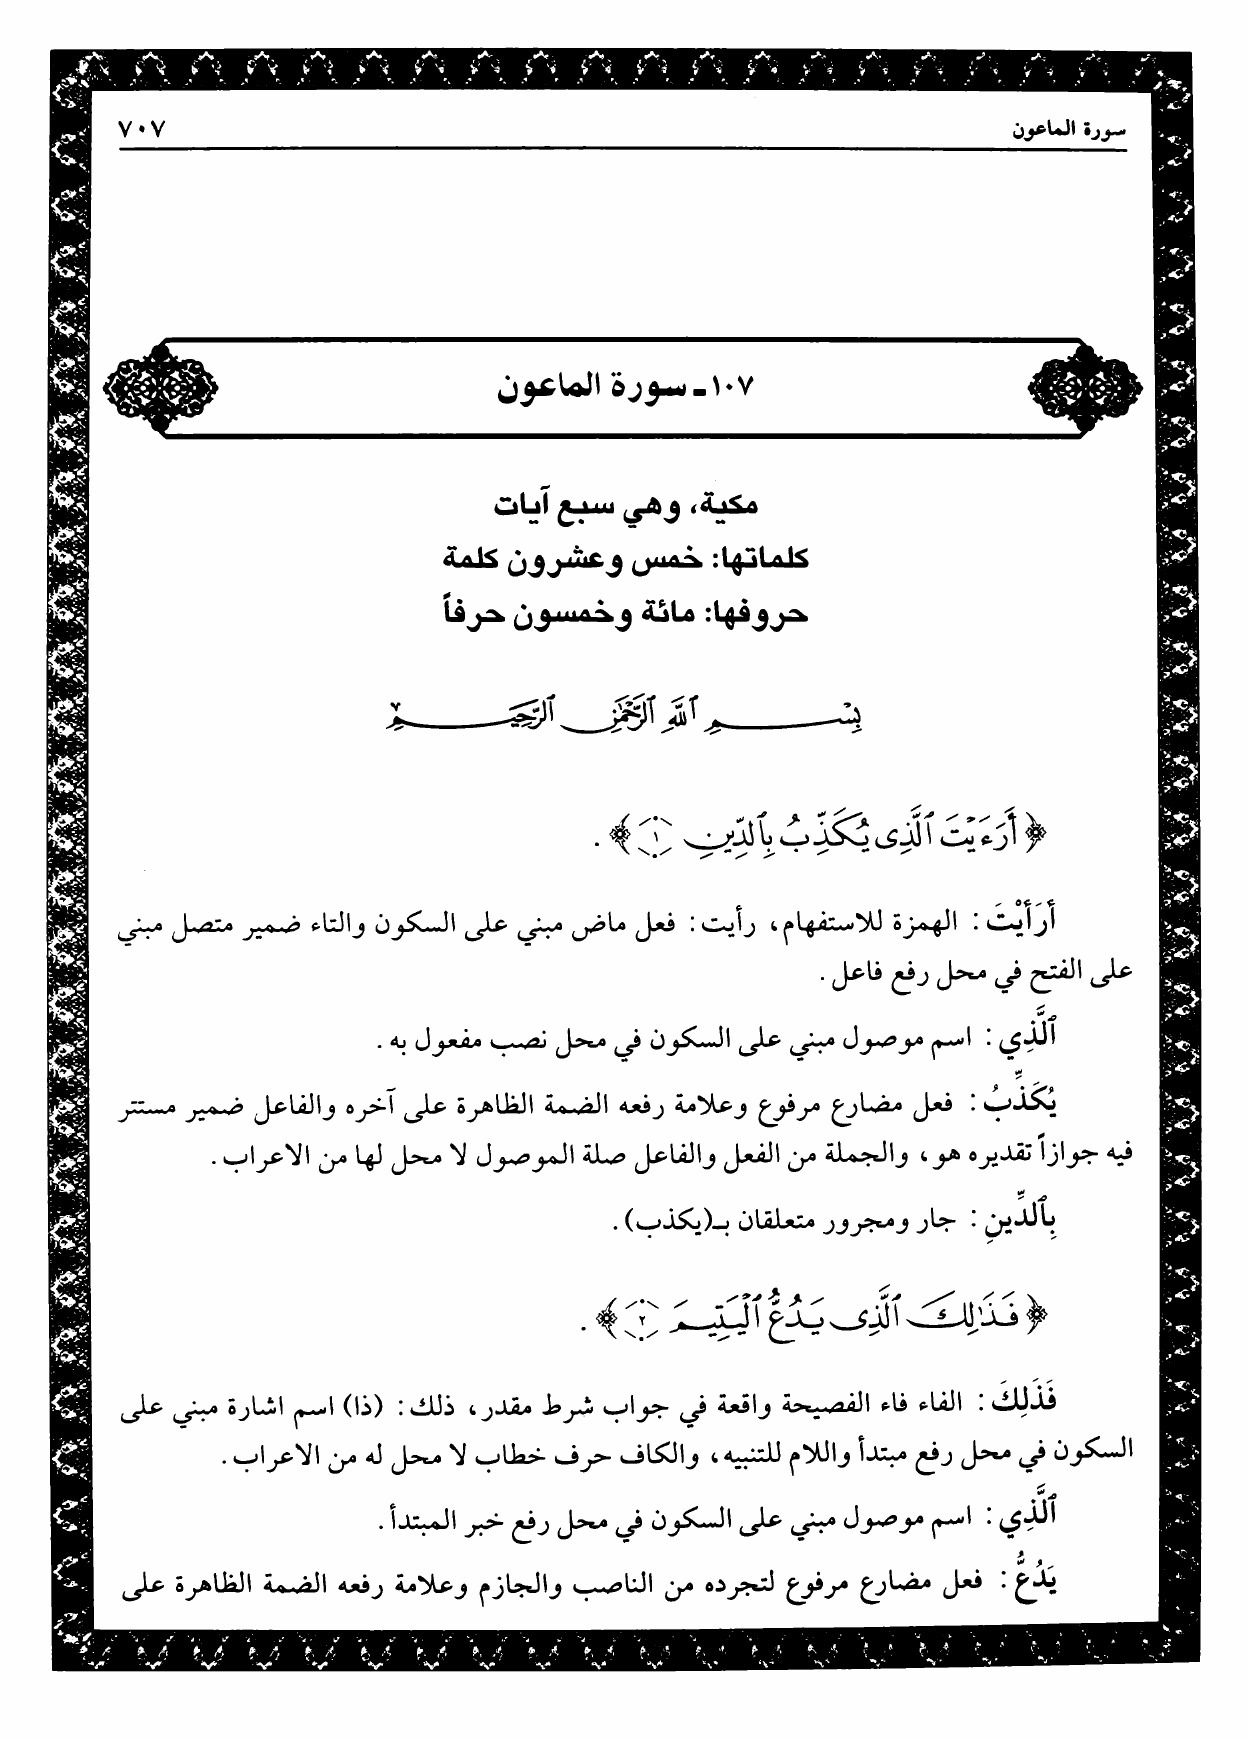 سورة الماعون ٧٠٧
١٠٧ ـ سورة الماعون
مكية، وهي سبع آيات
كلماتها: خمس وعشرون كلمة
حروفها: مائة وخمسون حرفاً
بِسْمِ ٱللَّهِ ٱلرَّحْمَٰنِ ٱلرَّحِيمِ
﴿ أَرَءَيْتَ ٱلَّذِى يُكَذِّبُ بِٱلدِّينِ ١ ﴾ .
أَرَأَيْتَ : الهمزة للاستفهام، رأيت : فعل ماض مبني على السكون والتاء ضمير متصل مبني
على الفتح في محل رفع فاعل .
ٱلَّذِي : اسم موصول مبني على السكون في محل نصب مفعول به .
يُكَذِّبُ : فعل مضارع مرفوع وعلامة رفعه الضمة الظاهرة على آخره والفاعل ضمير مستتر
فيه جوازاً تقديره هو، والجملة من الفعل والفاعل صلة الموصول لا محل لها من الاعراب .
بِٱلدِّينِ : جار ومجرور متعلقان بـ(يكذب) .
﴿ فَذَٰلِكَ ٱلَّذِى يَدُعُّ ٱلْيَتِيمَ ٢ ﴾ .
فَذَلِكَ : الفاء فاء الفصيحة واقعة في جواب شرط مقدر، ذلك : (ذا) اسم اشارة مبني على
السكون في محل رفع مبتدأ واللام للتنبيه، والكاف حرف خطاب لا محل له من الاعراب .
ٱلَّذِي : اسم موصول مبني على السكون في محل رفع خبر المبتدأ .
يَدُعُّ : فعل مضارع مرفوع لتجرده من الناصب والجازم وعلامة رفعه الضمة الظاهرة على